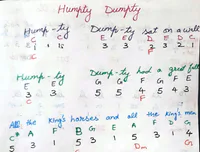 Humpty Dumpty
Hump - ty Dump - ty sat on a wall
E E E E D E D C
3 3 3 2 3 2 1
C
Hump - ty Dump - ty had a great fall
E G G F G F E
3 5 5 4 5 4 3
C F
All the King's horses and all the King's men
A F B G E A F D G C
5 3 1 5 3 1 5 3 1 4
Dm G